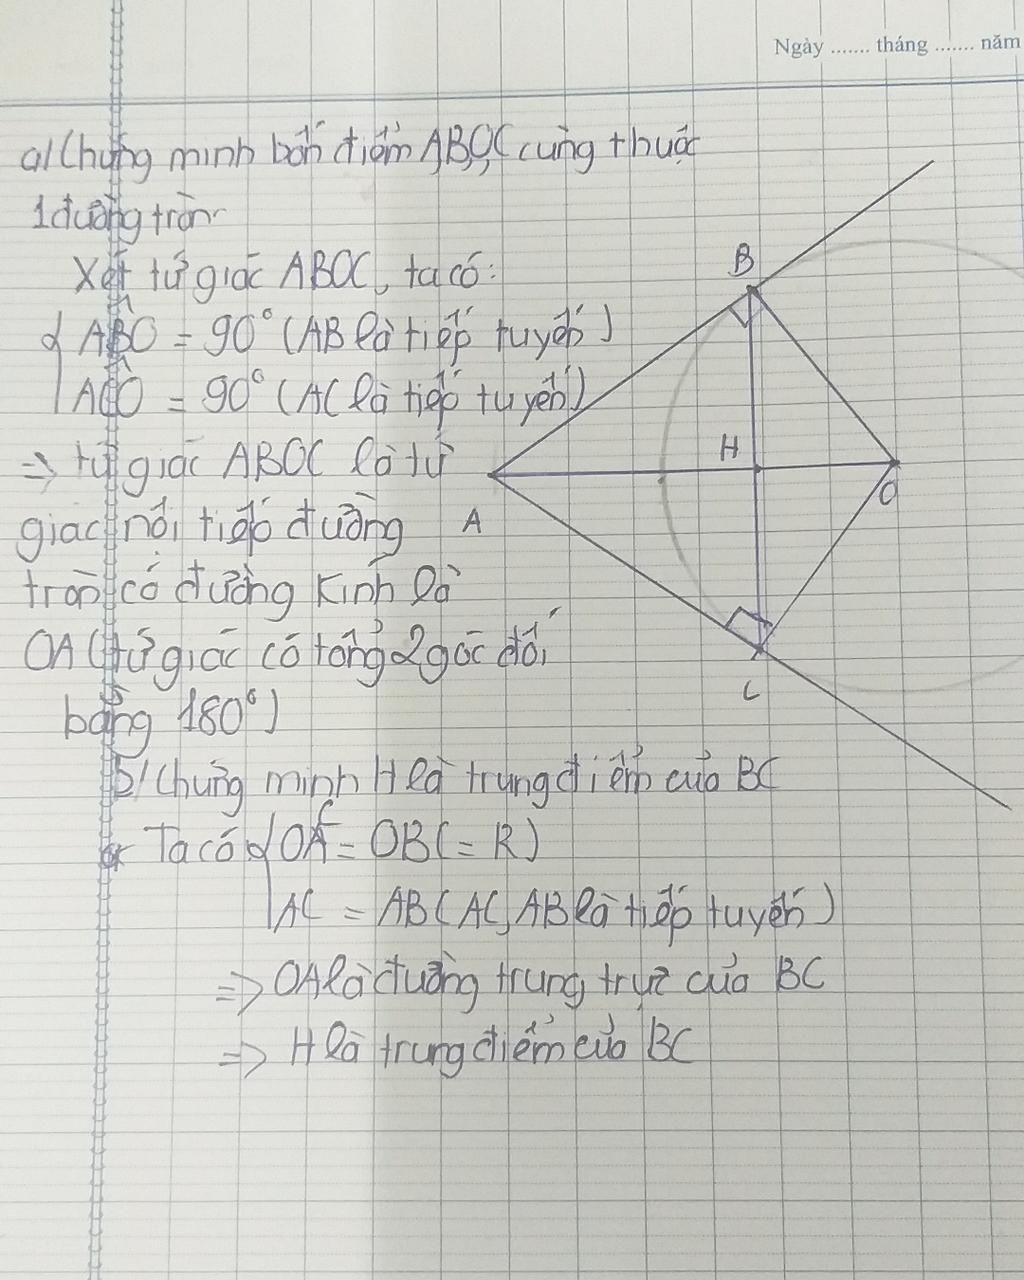 Ngày ....... tháng ....... năm
a/Chứng minh bốn điểm A,B,O,C cùng thuộc
1 đường tròn
Xét tứ giác ABOC, ta có:
{ ABÔ = 90° (AB là tiếp tuyến)
ACÔ = 90° (AC là tiếp tuyến)
=> tứ giác ABOC là tứ
giác nối tiếp đường
tròn có đường kính là
OA (tứ giác có tổng 2 góc đối
bằng 180°)
b/ Chứng minh H là trung điểm của BC
Ta có { OC = OB (= R)
AC = AB (AC, AB là tiếp tuyến)
=> OA là đường trung trực của BC
=> H là trung điểm của BC
B
H
O
A
C